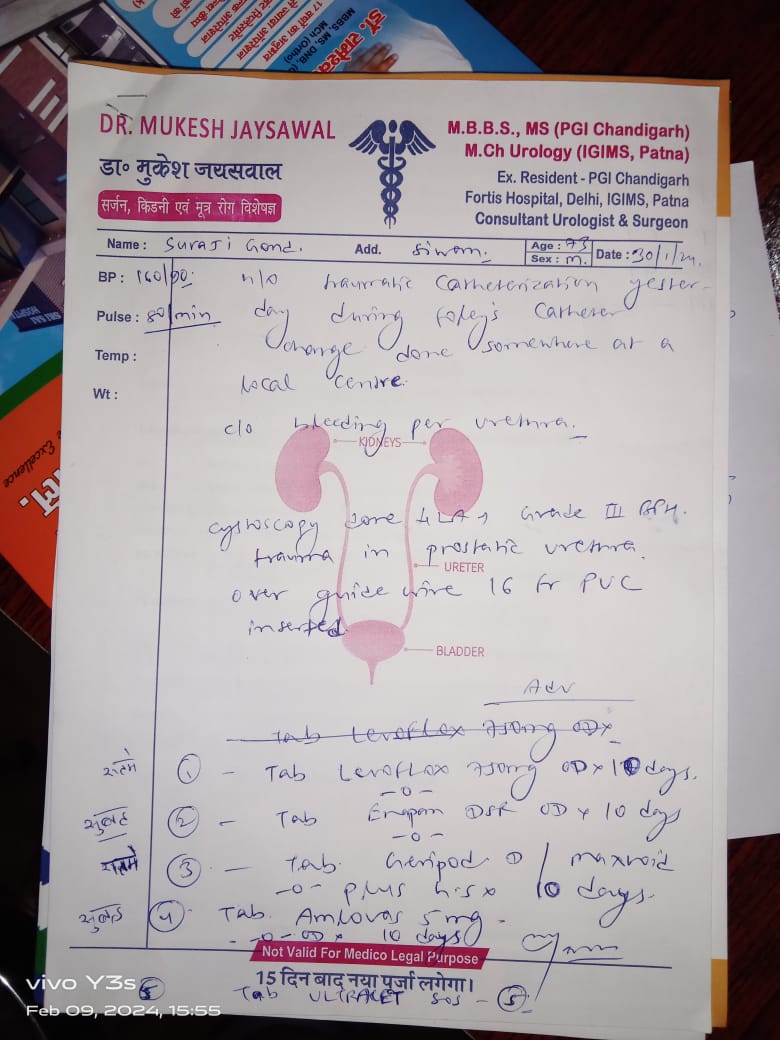 DR. MUKESH JAYSAWAL
डा० मुकेश जयसवाल
सर्जन, किडनी एवं मूत्र रोग विशेषज्ञ
M.B.B.S., MS (PGI Chandigarh)
M.Ch Urology (IGIMS, Patna)
Ex. Resident - PGI Chandigarh
Fortis Hospital, Delhi, IGIMS, Patna
Consultant Urologist & Surgeon
Name : Suraji Gond. Add. Siwan. Age : 73 Sex : M. Date : 30/1/24.
BP : 160/90
Pulse : 80/min
Temp :
Wt :
H/o traumatic Catheterization yester-
day during foley's Catheter
change done somewhere at a
local centre.
c/o bleeding per urethra.
KIDNEYS
cystoscopy done Grade III BPH.
trauma in prostatic urethra.
URETER
over guide wire 16 Fr PVC
inserted.
BLADDER
Adv
Tab Levoflox 750mg OD x
① - Tab Levoflox 750mg OD x 10 days.
-0-
सुबह ② - Tab DSR OD x 10 days
-0-
③ - Tab. D / Maxvoid
-0- plus h.s x 10 days.
सुबह ④ - Tab. Amlovas 5 mg -
-0- OD x 10 days
Not Valid For Medico Legal Purpose
15 दिन बाद नया पुर्जा लगेगा।
⑤ Tab ULTRACET SOS - ⑤
vivo Y3s
Feb 09, 2024, 15:55